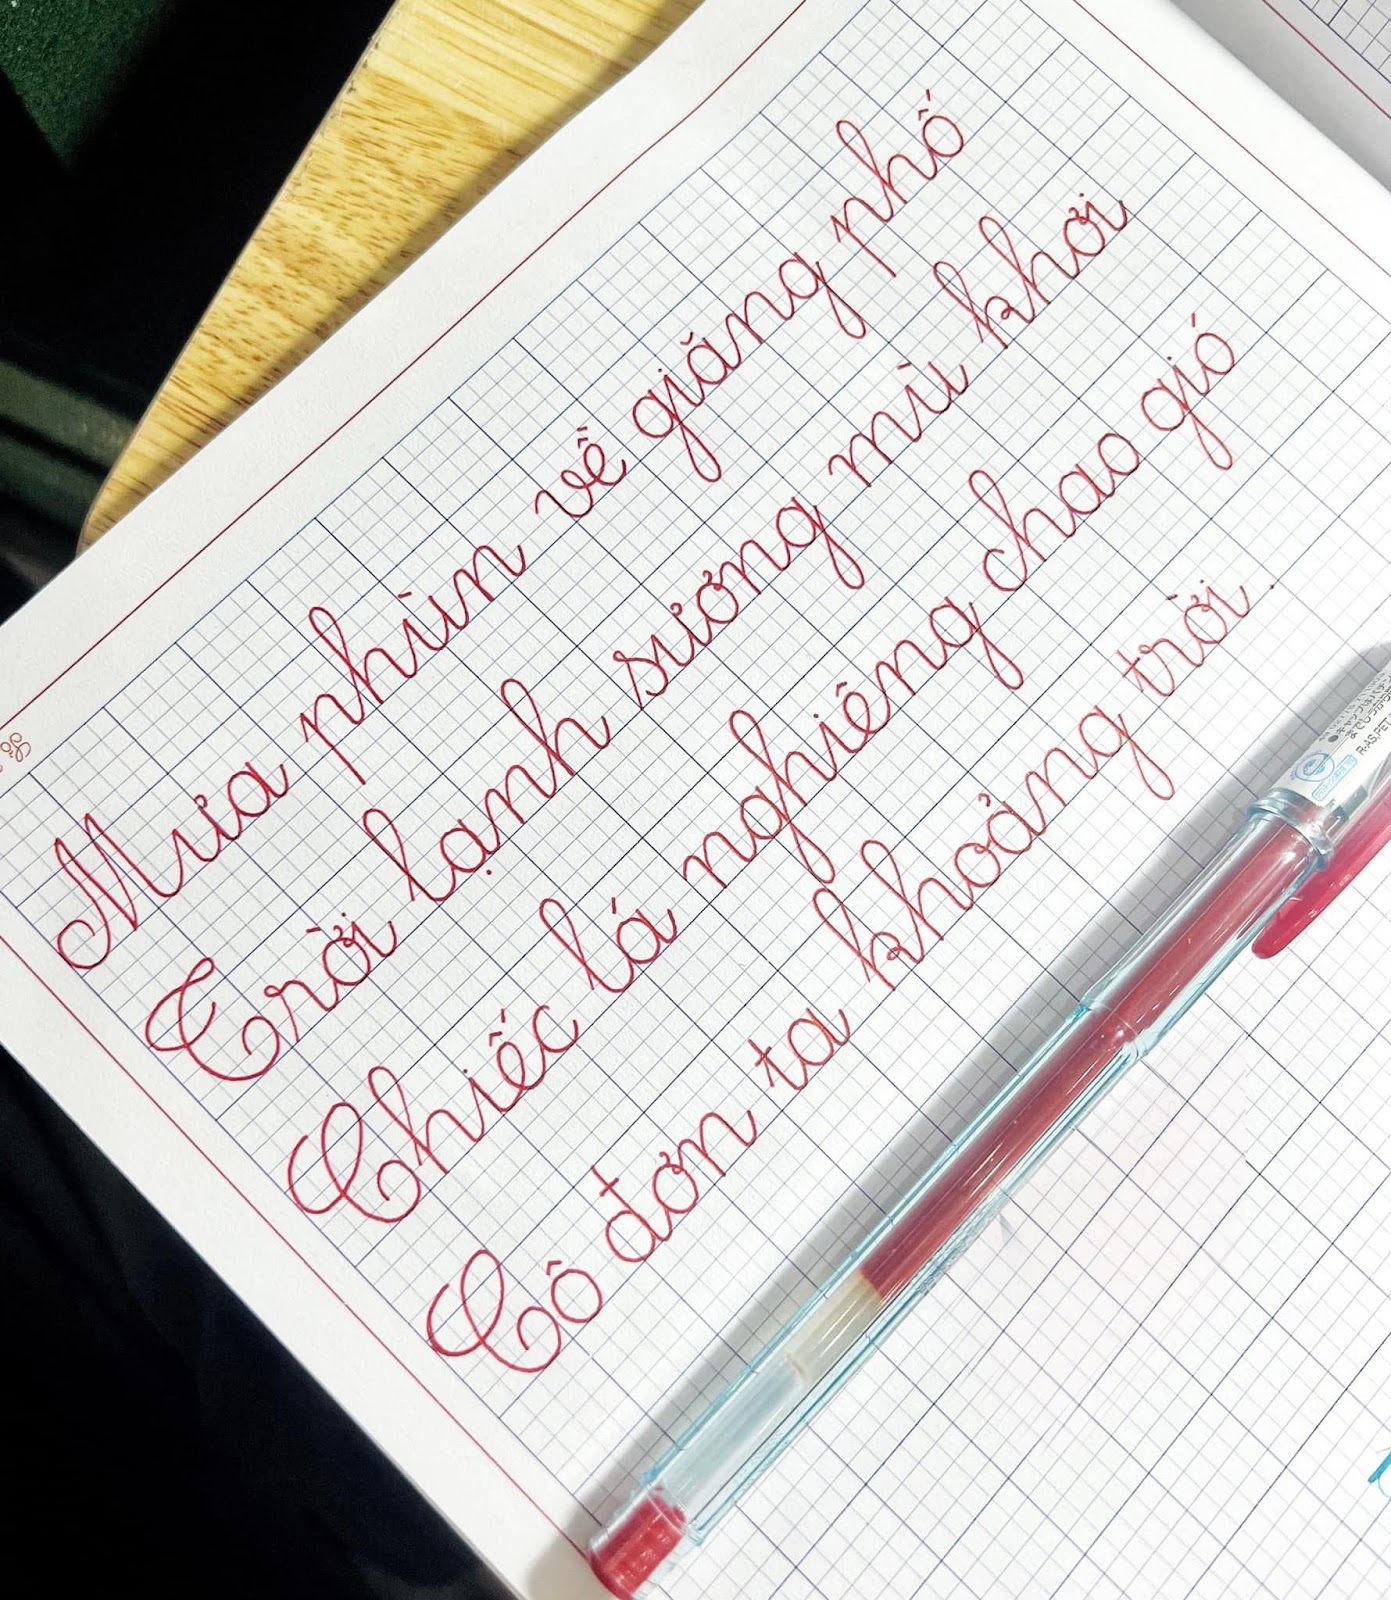 Mưa phùn vế giăng phố
Trời lạnh sương mù khơi
Chiếc lá nghiêng chao gió
Cô đơn ta khoảng trời.
R-AS,PET